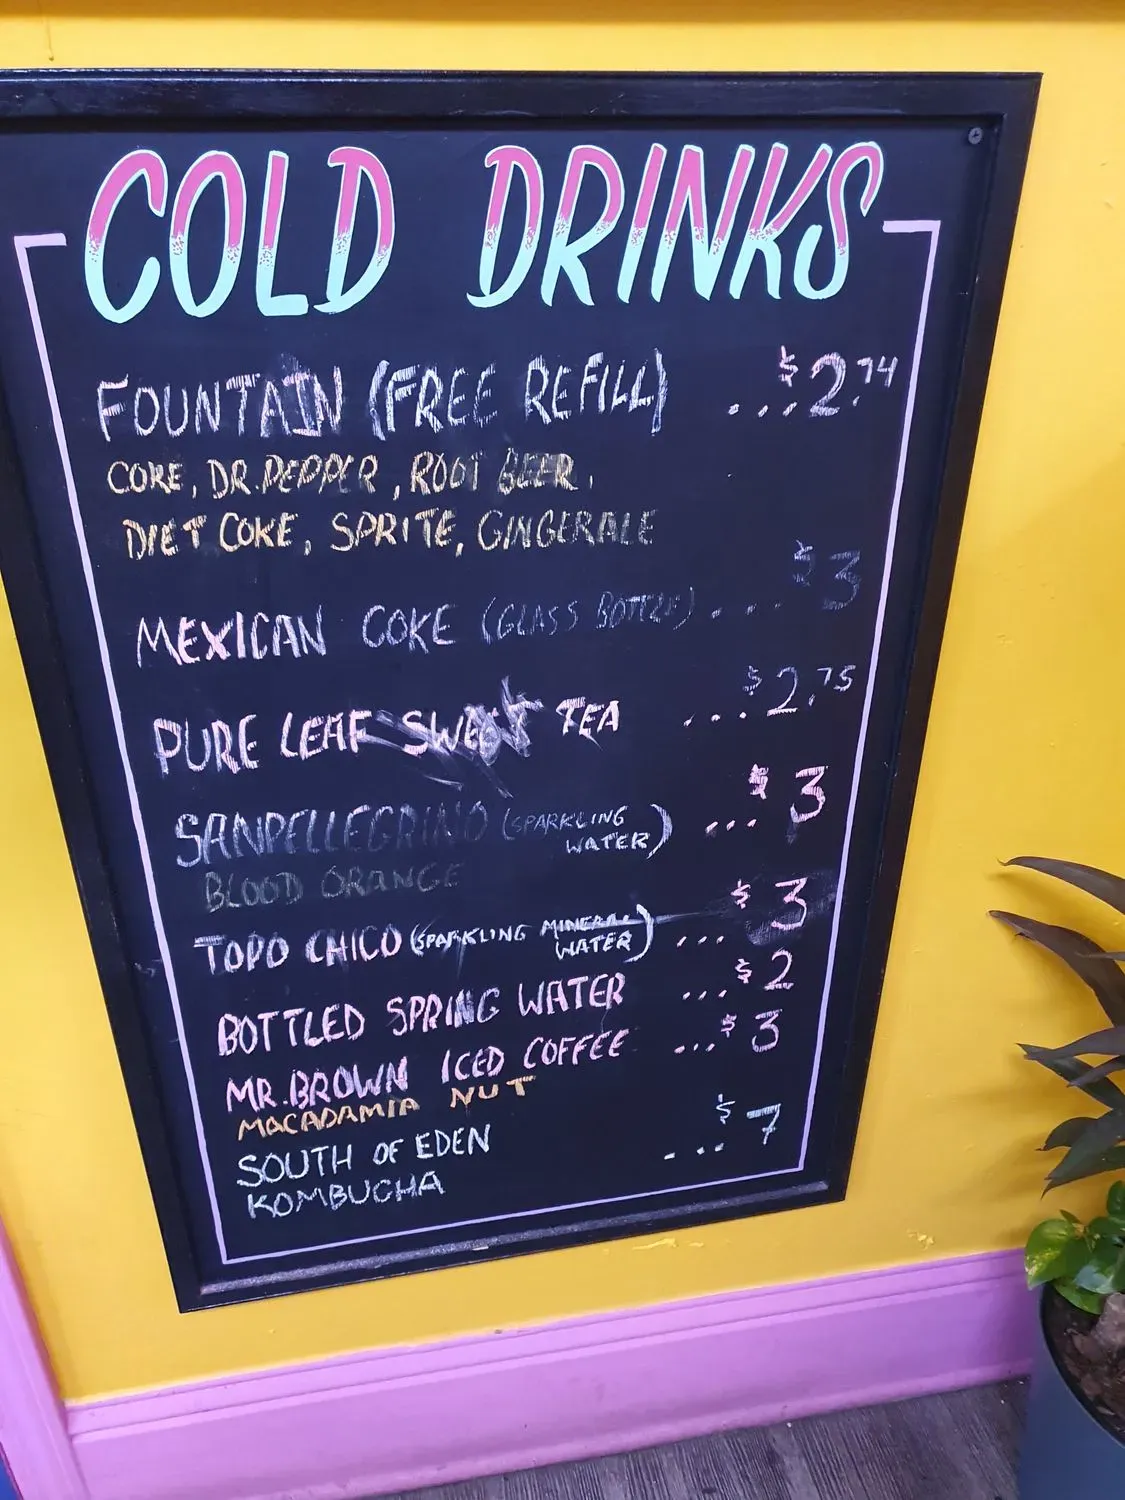 COLD DRINKS
FOUNTAIN (FREE REFILL) ...$2.74
COKE, DR.PEPPER, ROOT BEER,
DIET COKE, SPRITE, GINGERALE
MEXICAN COKE (GLASS BOTTLE) ... $3
PURE LEAF SWEET TEA ...$2.75
SANPELLEGRINO (SPARKLING WATER) ... $3
BLOOD ORANGE
TOPO CHICO (SPARKLING MINERAL WATER) ... $3
BOTTLED SPRING WATER ...$2
MR.BROWN ICED COFFEE ...$3
MACADAMIA NUT
SOUTH OF EDEN ... $7
KOMBUCHA